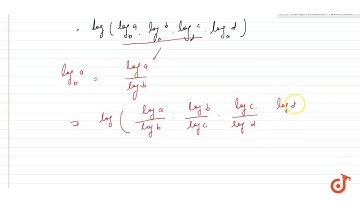 · log ( log_b a · log_c b · log_d c · log_a d )
log_b a = log a / log b
⇒ log ( log a / log b · log b / log c · log c / log d · log d